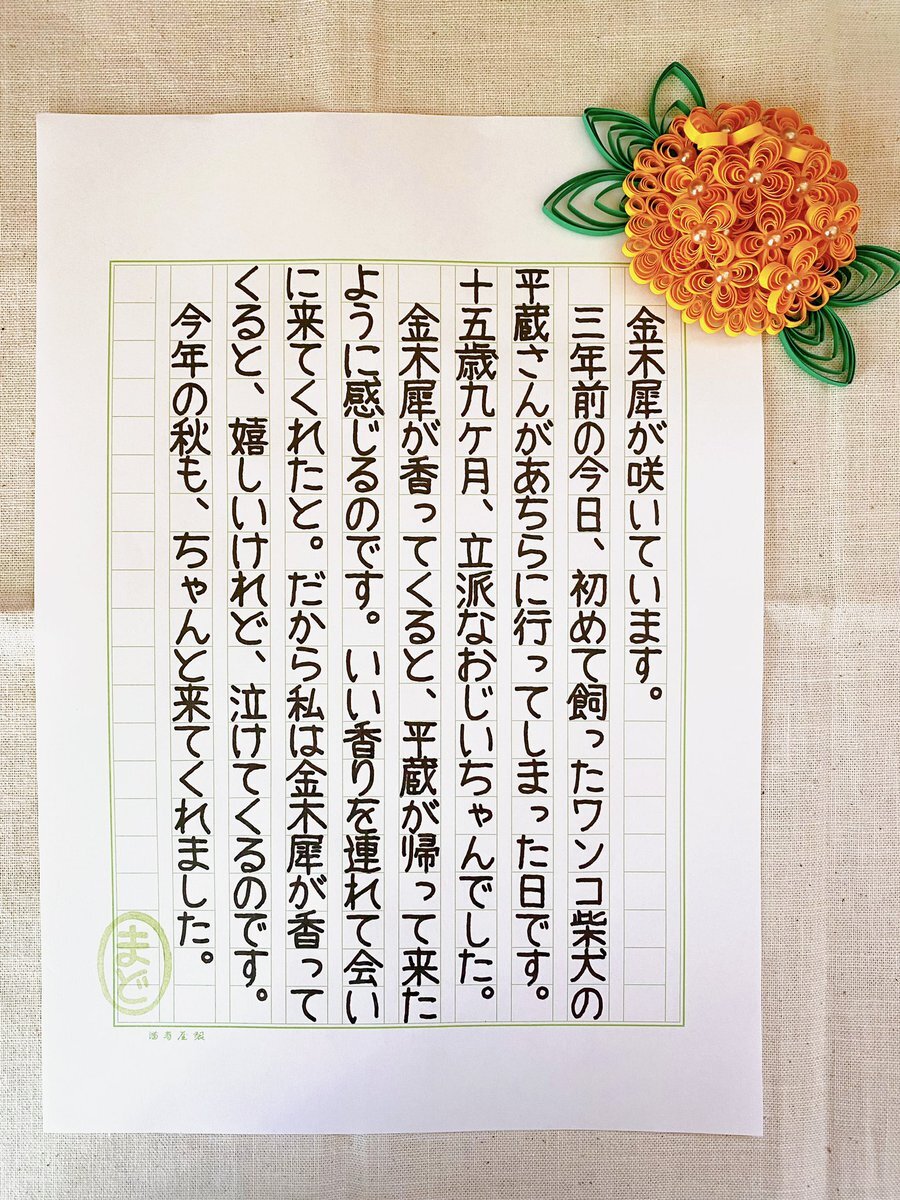 金木犀が咲いています。
三年前の今日、初めて飼ったワンコ柴犬の
平蔵さんがあちらに行ってしまった日です。
十五歳九ケ月、立派なおじいちゃんでした。
金木犀が香ってくると、平蔵が帰って来た
ように感じるのです。いい香りを連れて会い
に来てくれたと。だから私は金木犀が香って
くると、嬉しいけれど、泣けてくるのです。
今年の秋も、ちゃんと来てくれました。
まど
満寿屋製